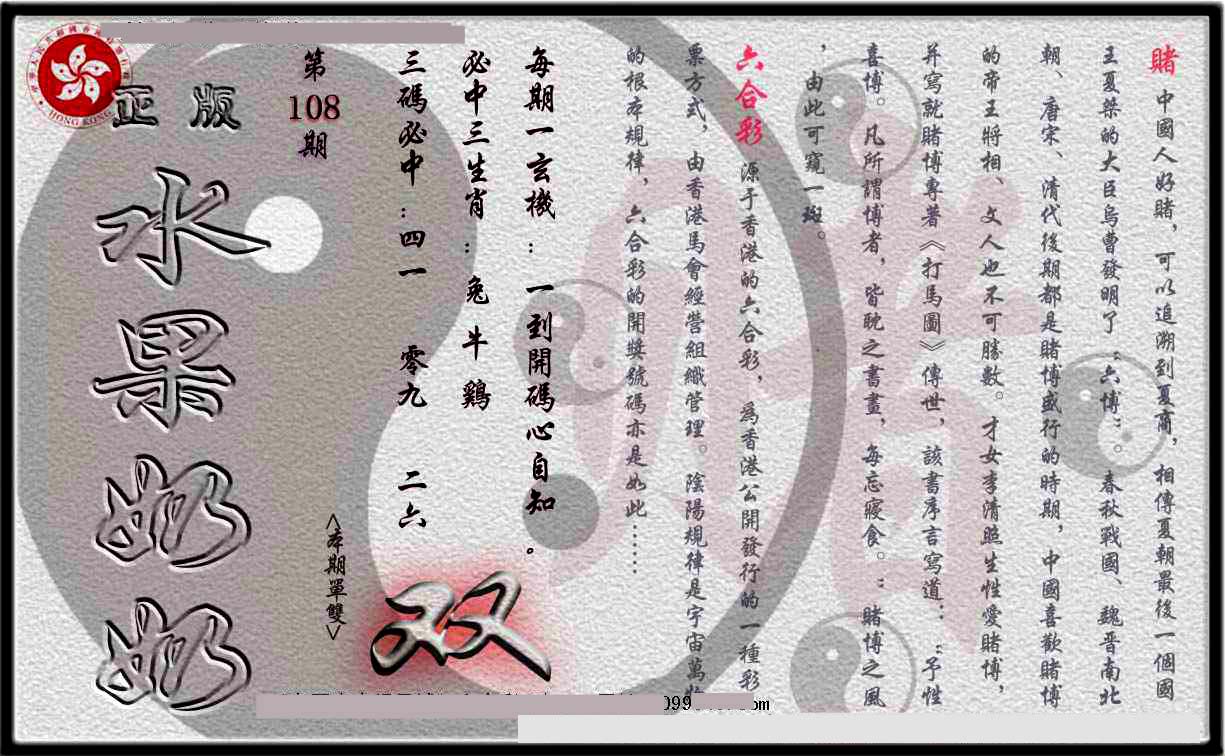 賭 中國人好賭，可以追溯到夏商，相傳夏朝最後一個國
王夏桀的大臣烏曹發明了“六博”。春秋戰國、魏晋南北
朝、唐宋、清代後期都是賭博盛行的時期，中國喜歡賭博
的帝王將相、文人也不可勝數。才女李清照生性愛賭博，
并寫就賭博專著《打馬圖》傳世，該書序言寫道：“予性
喜博。凡所謂博者，皆耽之書畫，每忘寢食。”賭博之風
，由此可窺一斑。
六合彩 源于香港的六合彩，爲香港公開發行的一種彩
票方式，由香港馬會經營組織管理。陰陽規律是宇宙萬物
的根本規律，六合彩的開獎號碼亦是如此……
每期一玄機：一到開碼心自知。
必中三生肖：兔牛鷄
三碼必中：四一 零九 二六
第108期
<本期單雙>
双
正版
水果奶奶
HONG KONG